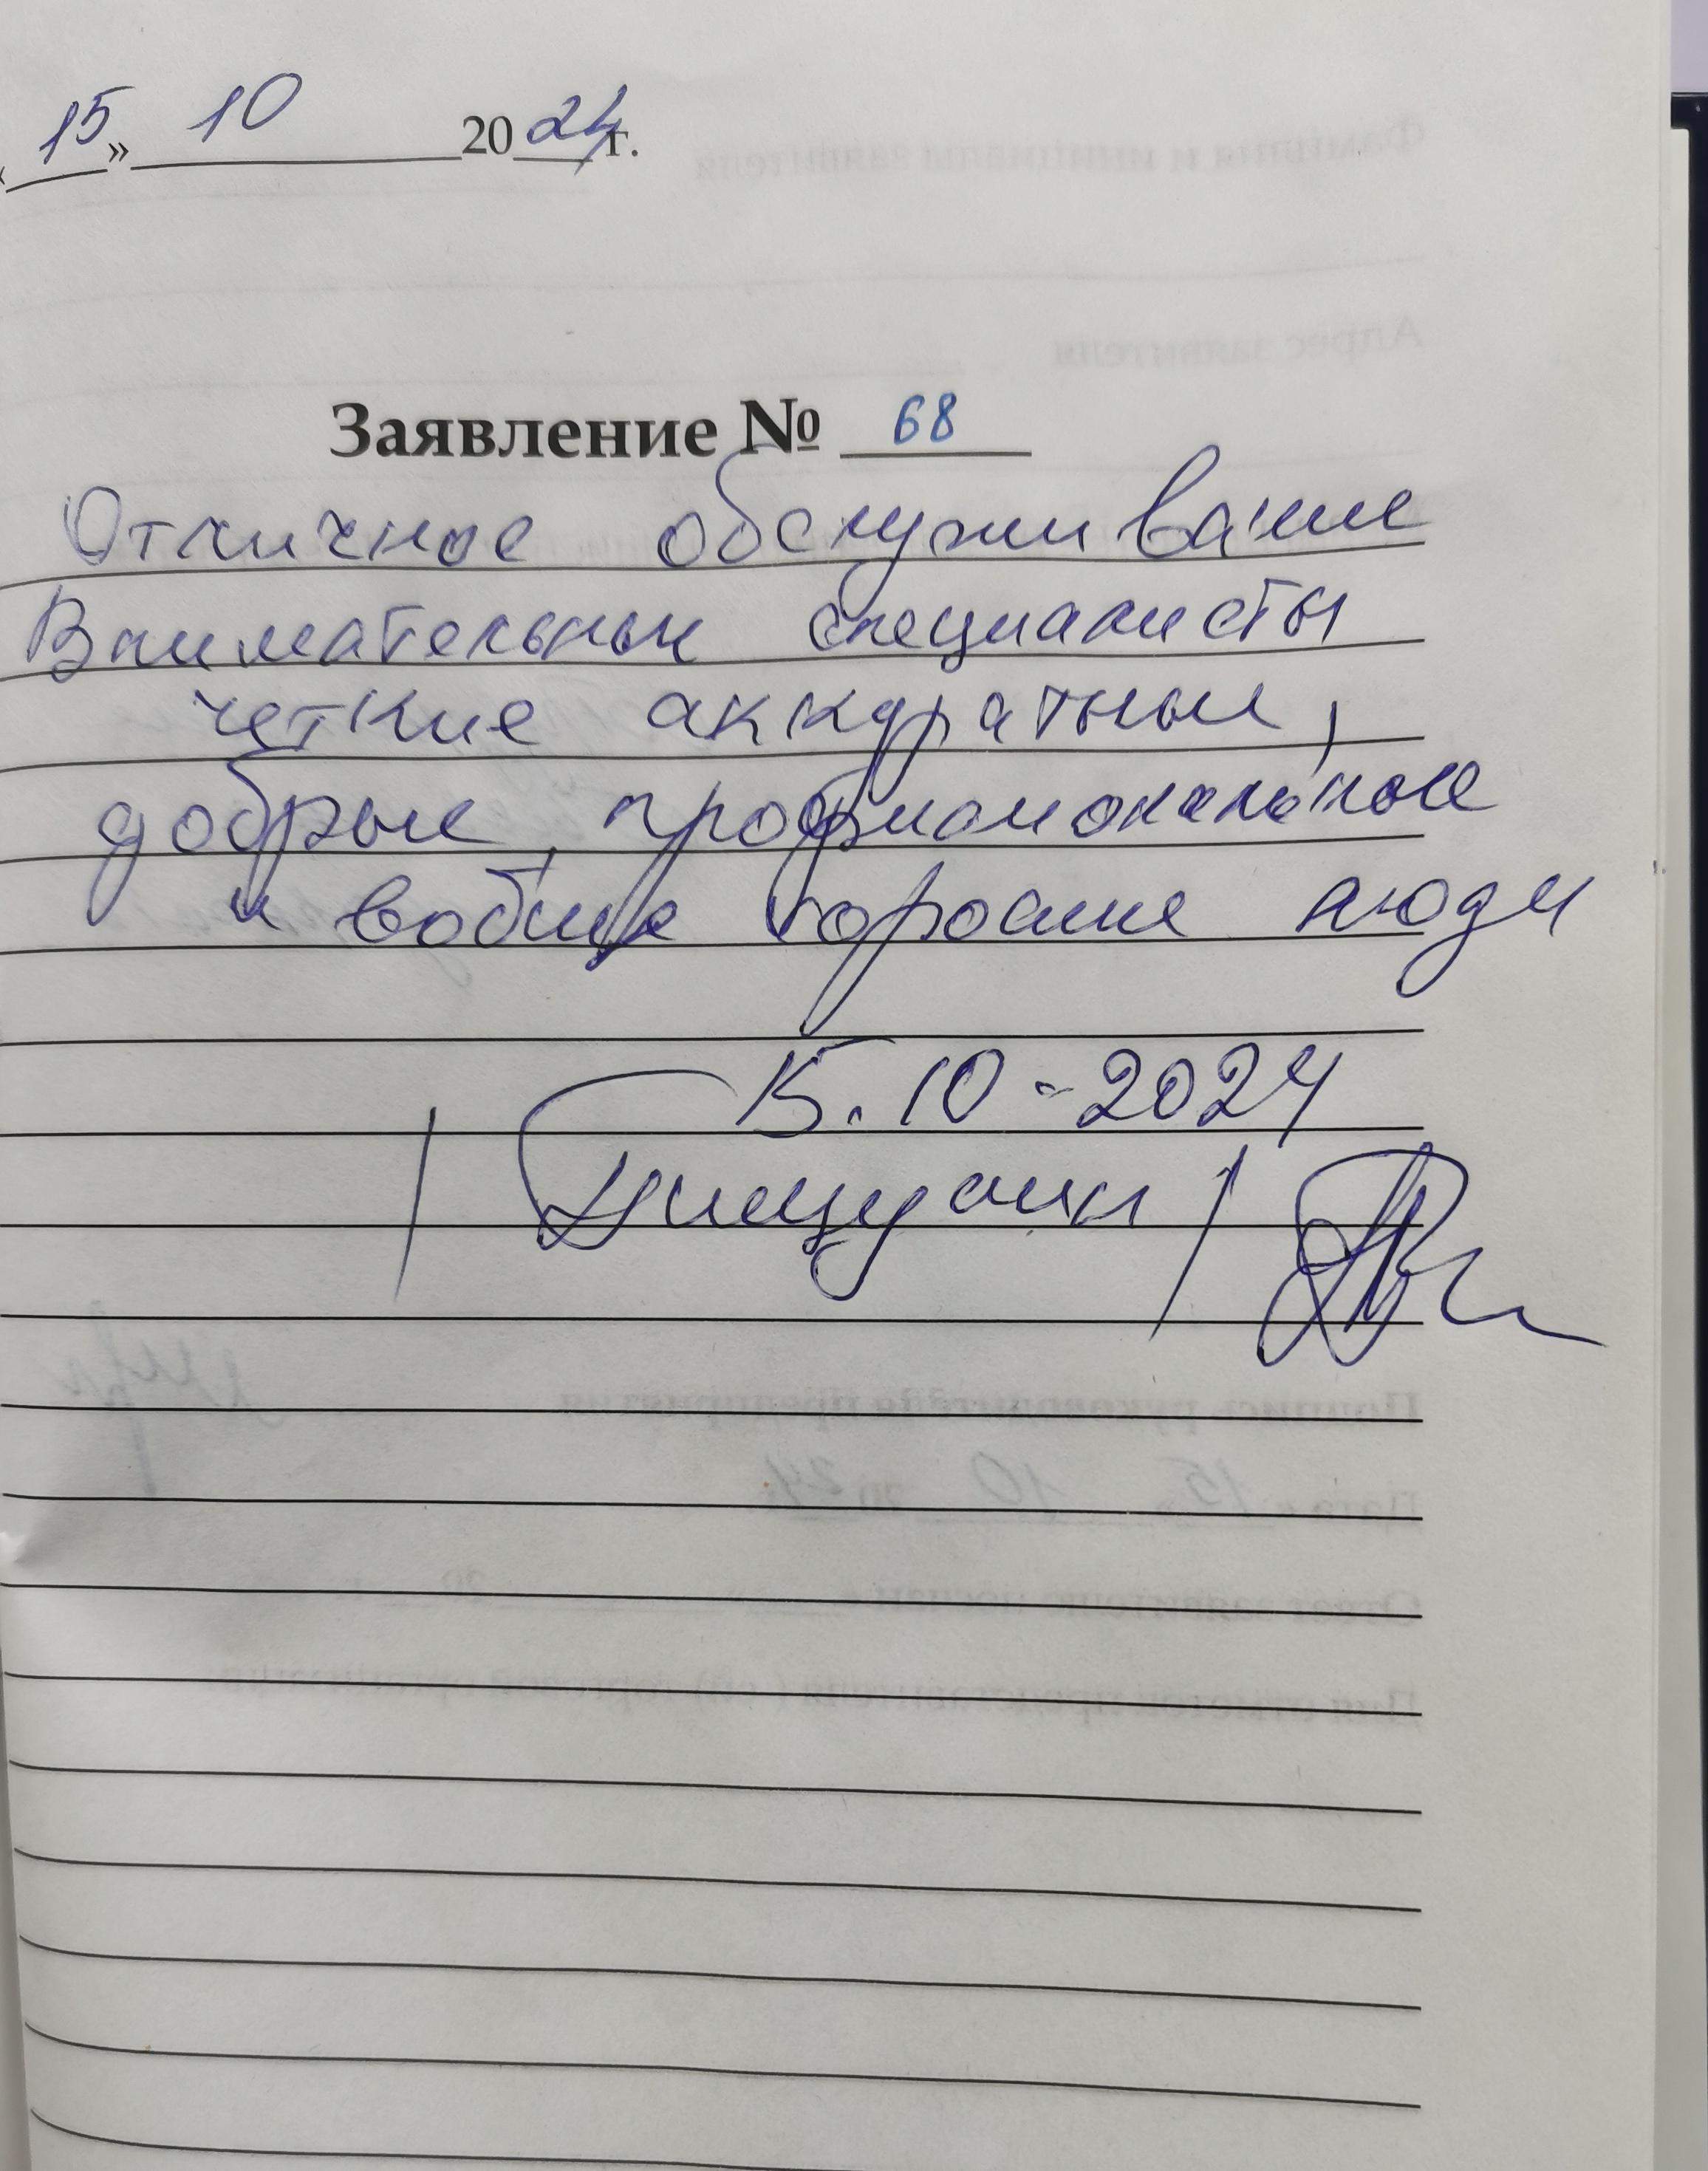 « 15 » 10 2024 г.
Заявление № 68
Отличное обслуживание
Внимательные специалисты
четкие аккуратные,
добрые, профиссиональные
и вобще хорошие люди
15.10-2024